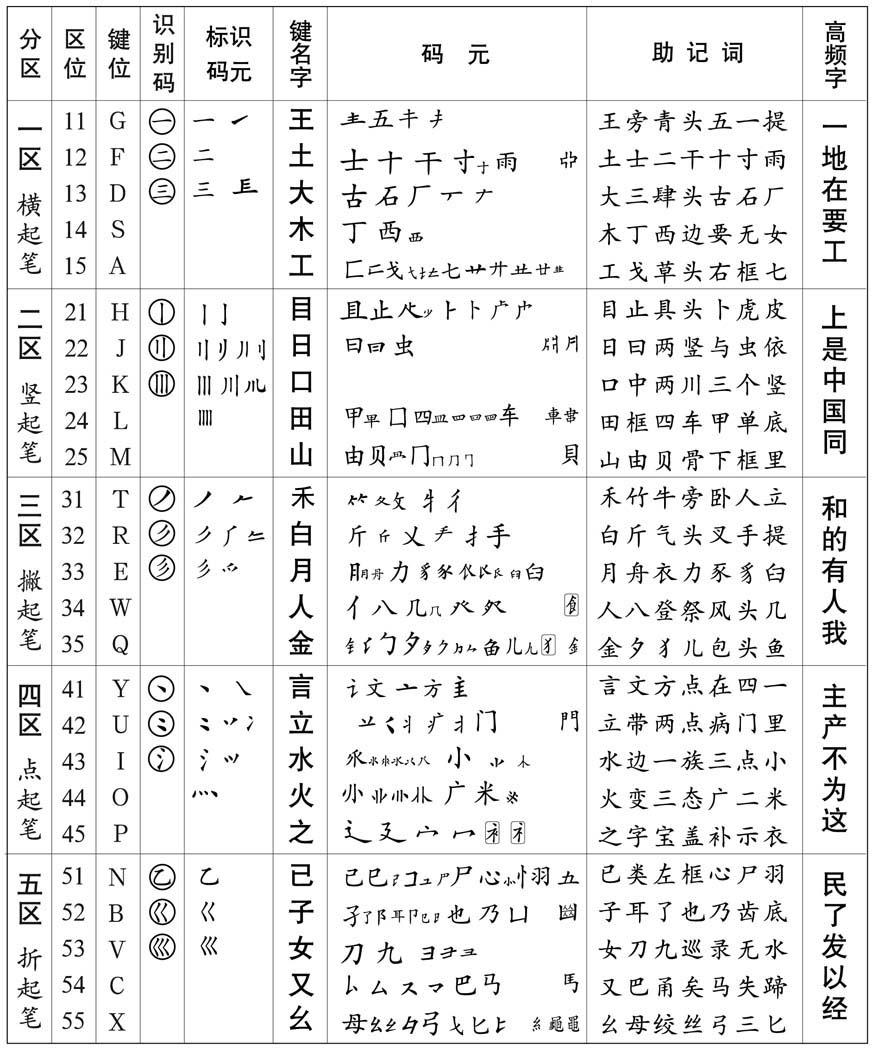 分区 区位 键位 识别码 标识码元 键名字 码元 助记词 高频字
一区 横起笔
11 G ㊀ 一 王 五 王旁青头五一提 一
12 F ㊁ 二 土 士十干寸雨 土士二干十寸雨 地
13 D ㊂ 三 大 古石厂 大三肆头古石厂 在
14 S 木 丁西覀 木丁西边要无女 要
15 A 工 匚戈七艹廾廿 工戈草头右框七 工
二区 竖起笔
21 H 目 且止卜 目止具头卜虎皮 上
22 J 日 曰虫 日曰两竖与虫依 是
23 K 川 口 口中两川三个竖 中
24 L 田 甲囗四皿车車 田框四车甲单底 国
25 M 山 由贝冂貝 山由贝骨下框里 同
三区 撇起笔
31 T 丿 禾 攵彳 禾竹牛旁卧人立 和
32 R 彡 白 斤乂扌手 白斤气头叉手提 的
33 E 彡 月 舟力豸豕臼 月舟衣力豕豸臼 有
34 W 人 亻八几癶飠 人八登祭风头几 人
35 Q 金 钅勹夕儿犭釒 金夕犭儿包头鱼 我
四区 点起笔
41 Y 丶 言 讠文亠方 言文方点在四一 主
42 U 冫 立 丬疒门門 立带两点病门里 产
43 I 氵 水 氺小 水边一族三点小 不
44 O 灬 火 广米 火变三态广二米 为
45 P 之 辶廴宀冖衤礻 之字宝盖补示衣 这
五区 折起笔
51 N 乙 已 己巳尸心忄羽 已类左框心尸羽 民
52 B 巜 子 孑了阝耳卩也乃凵 子耳了也乃齿底 了
53 V 巛 女 刀九彐 女刀九巡录无水 发
54 C 又 厶巴马馬 又巴甬矣马失蹄 以
55 X 幺 母弓匕糹黽 幺母绞丝弓三匕 经